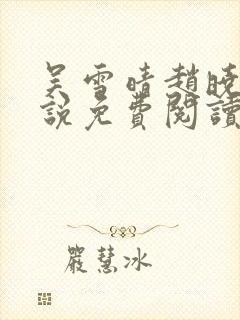 吴雪晴趙曉
說免費閱讀
嚴慧冰